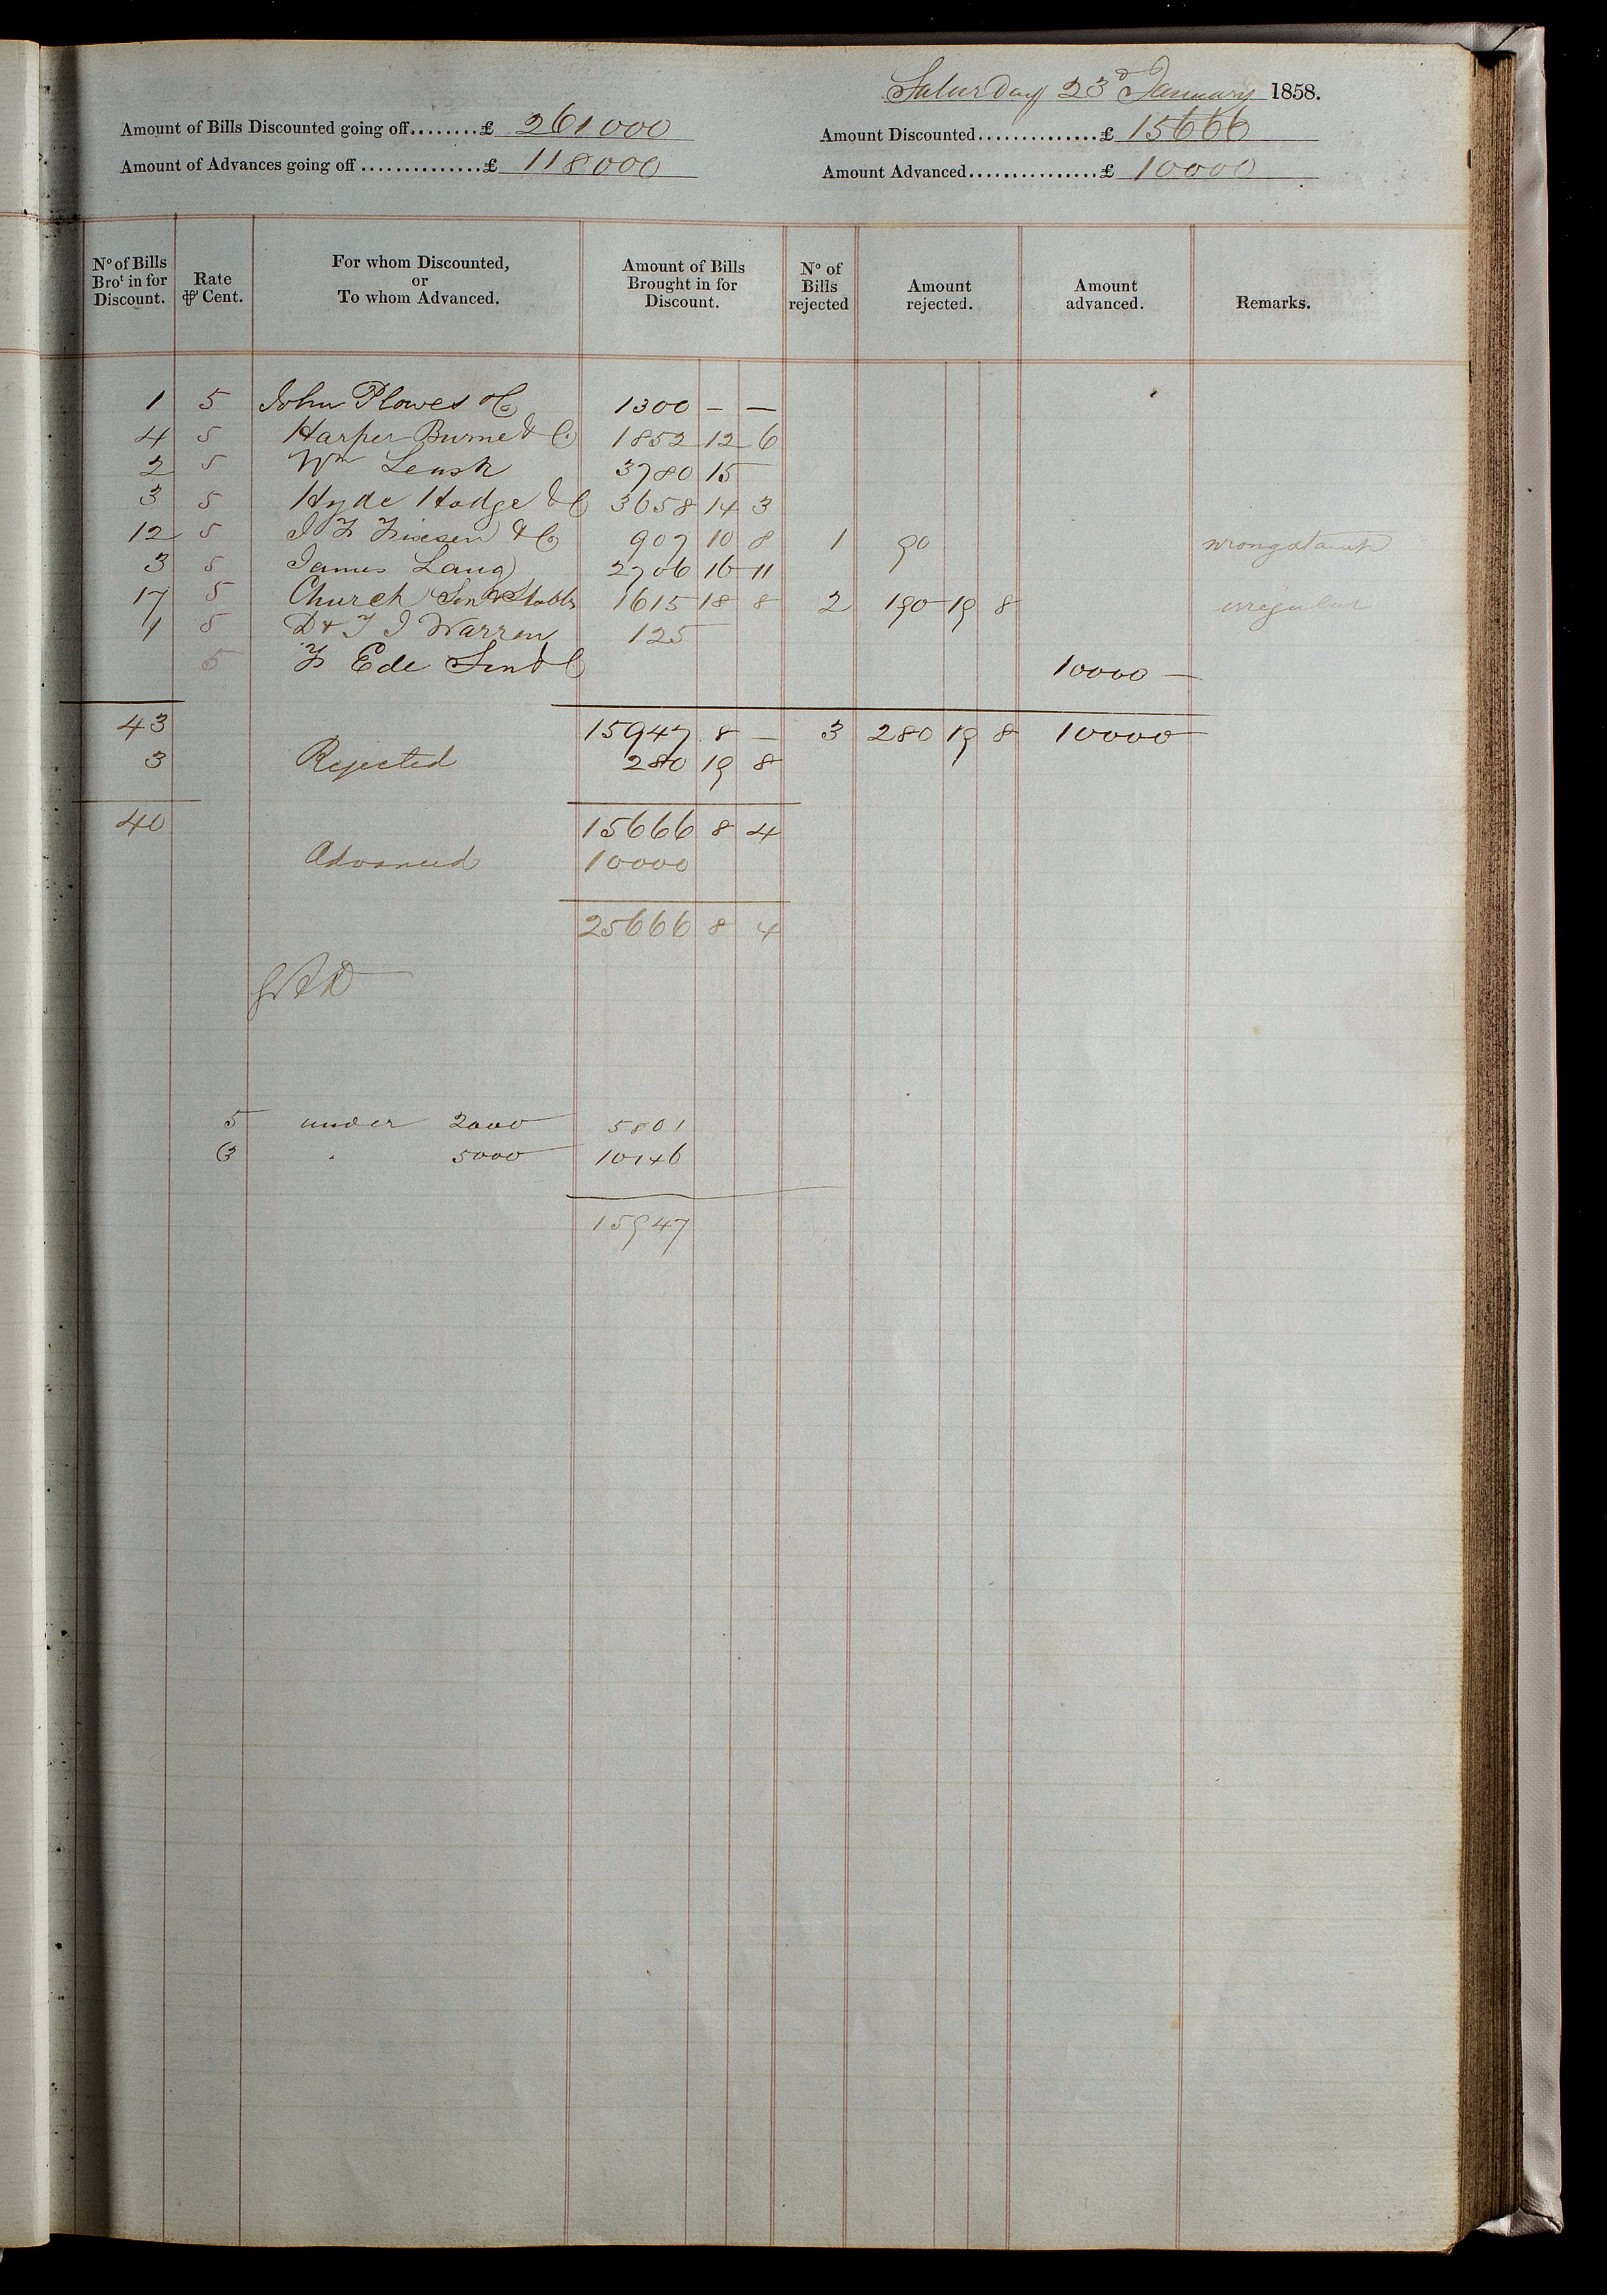 Saturday 23d January 1858.
Amount of Bills Discounted going off........£ 261000
Amount Discounted..............£ 15666
Amount of Advances going off..............£ 118000
Amount Advanced...............£ 10000
No of Bills Brot in for Discount. Rate ⅌ Cent. For whom Discounted, or To whom Advanced. Amount of Bills Brought in for Discount. No of Bills rejected Amount rejected. Amount advanced. Remarks.
1 5 John Plowes & Co 1300 — —
4 5 Harper Burne & Co 1852 12 6
2 5 Wm Leask 3780 15
3 5 Hyde Hodge & Co 3658 14 3
12 5 & Co 907 10 8 1 90 wrong stamp
3 5 James Laug 2706 16 11
17 5 Church Son & Stobbs 1615 18 8 2 190 19 8 irregular
1 5 D & T J Warren 125
5 F Ede Son & Co 10000 —
43 15947 8 — 3 280 19 8 10000
3 Rejected 280 19 8
40 15666 8 4
Advanced 10000
25666 8 4
5 under 2000 5801
3 " 5000 10146
15947